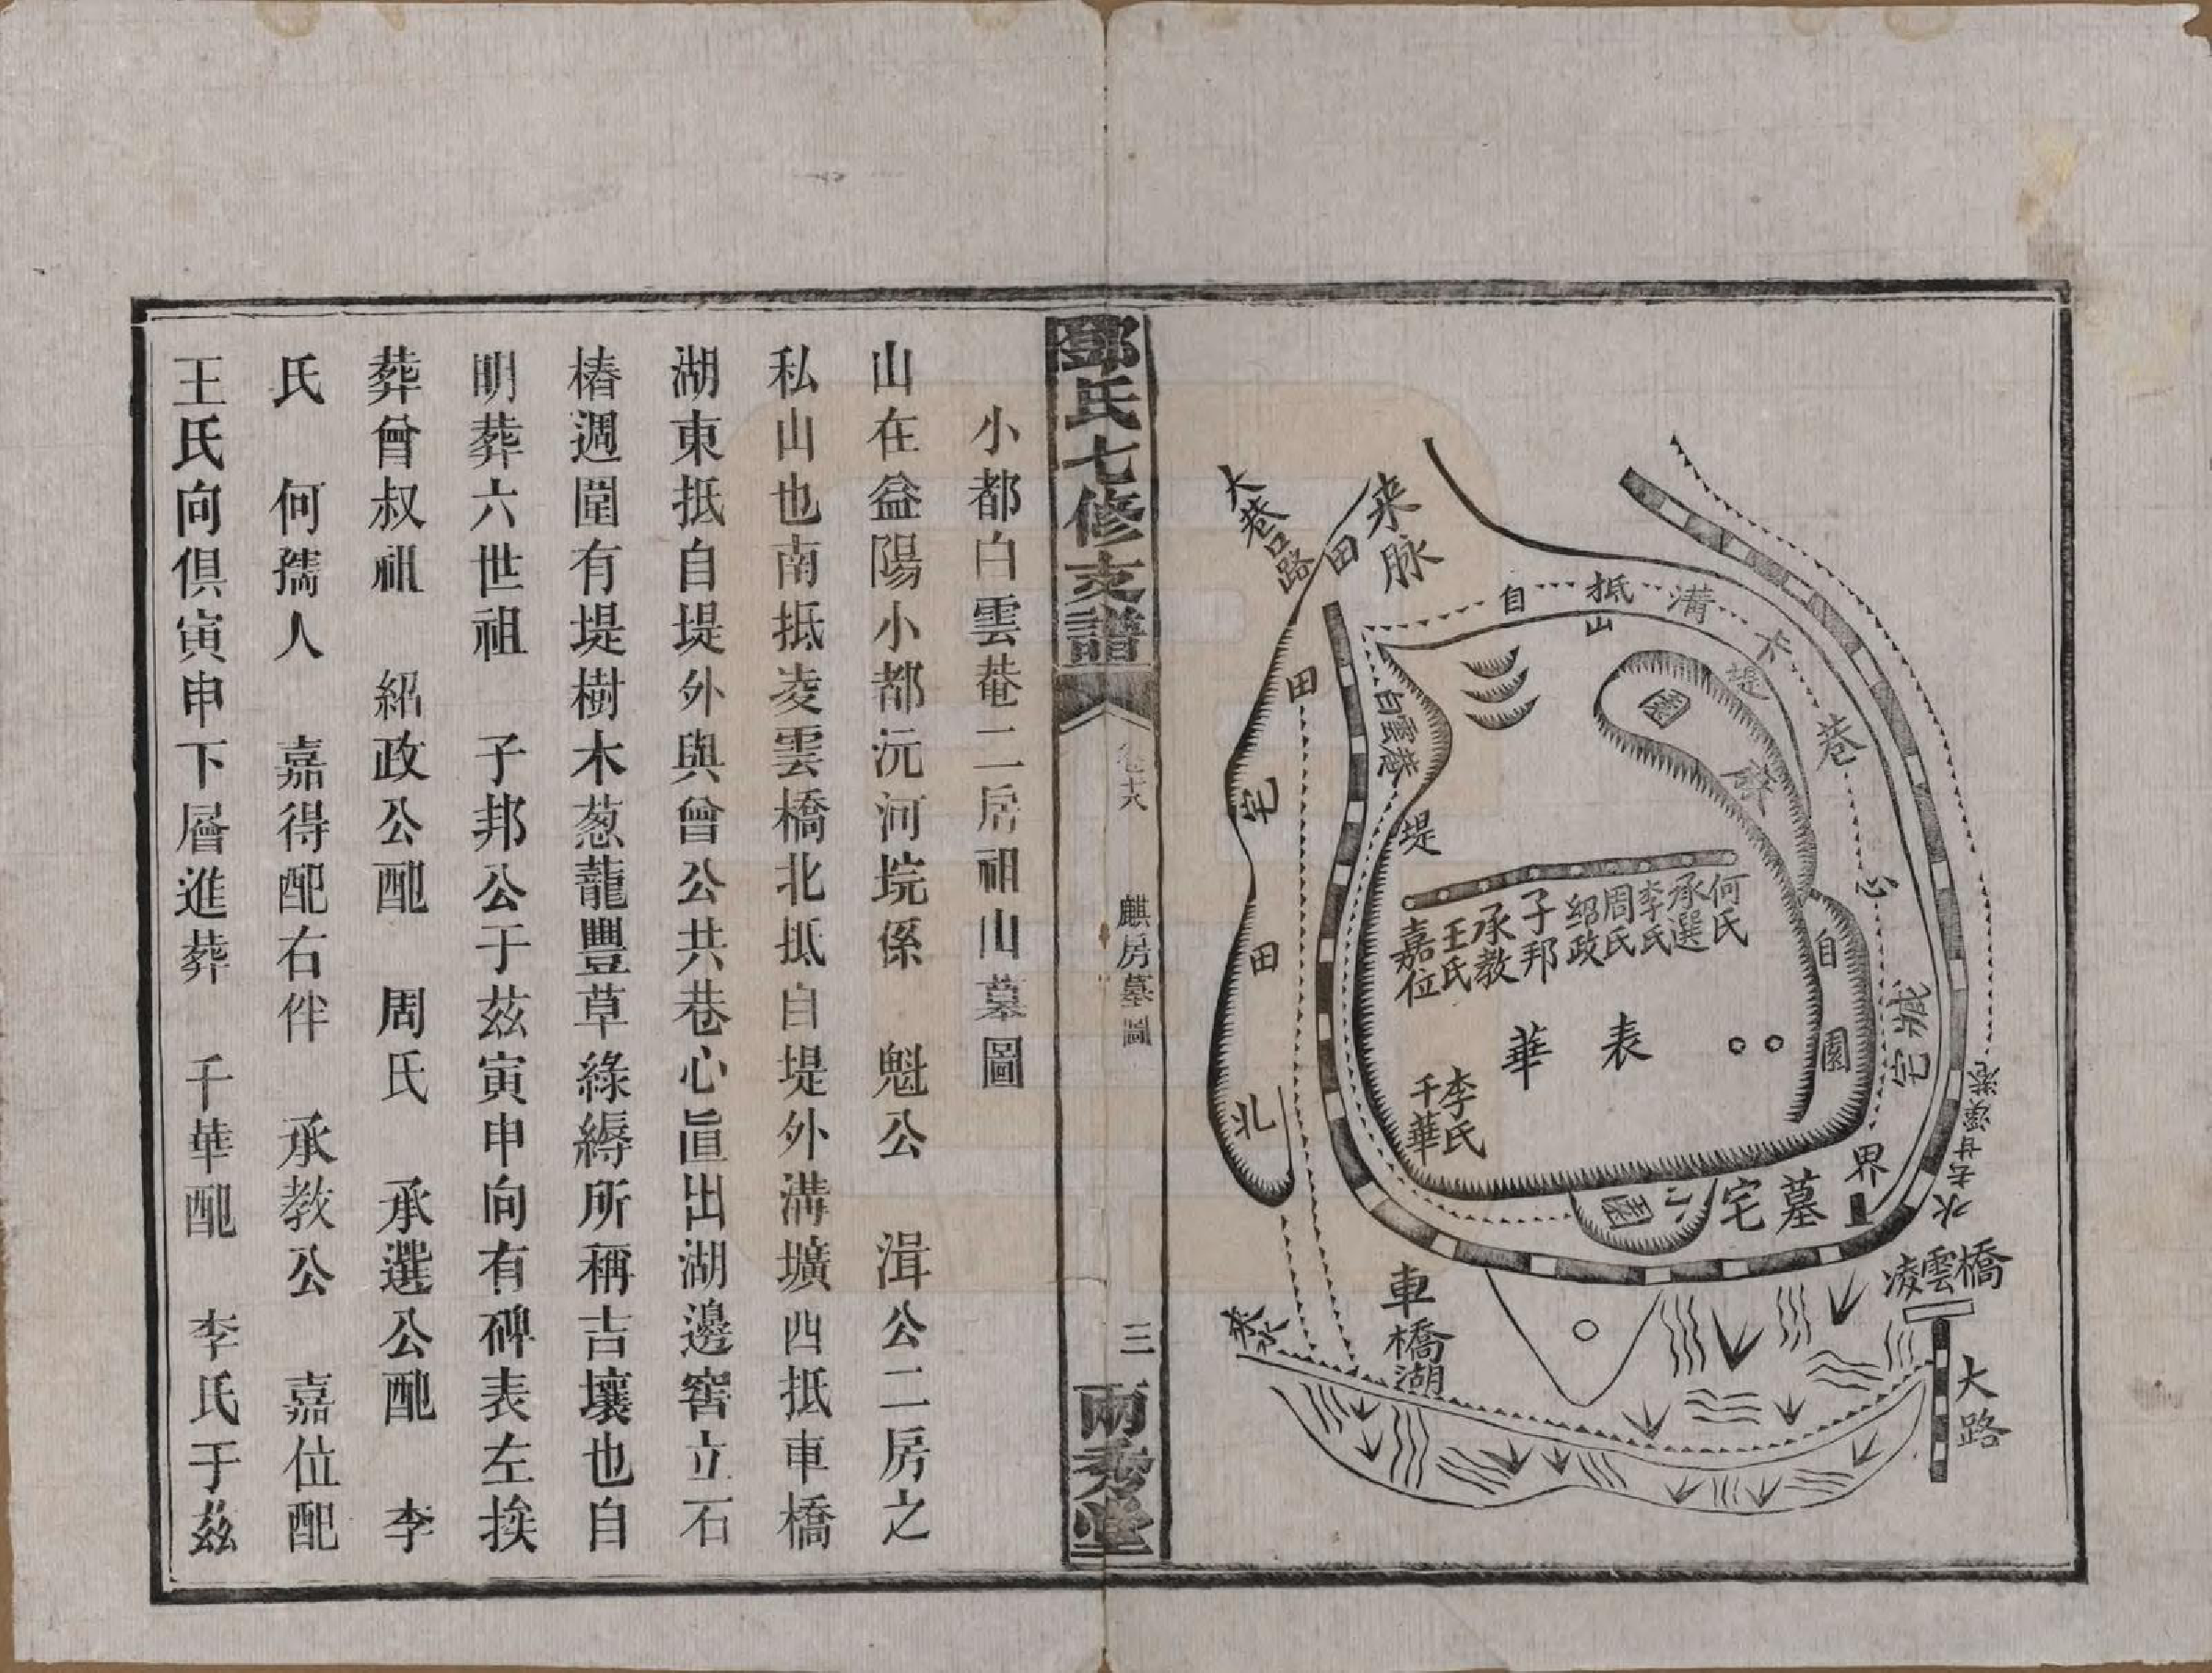 來脉
大巷口路
田
田
宅
田
北
自
抵
山
溝
卡
巷
心
堤
白雲菴
堤
園
何氏
承選
李氏
周氏
紹政
子邦
承教
王氏
嘉位
自
園
宅
表
華
李氏
千華
界
墓
宅
園
凌雲橋
大路
車橋湖
鄧氏七修支譜
麒房墓圖
三
兩秀堂
小都白雲菴二居祖山墓圖
山在益陽小都沅河垸係 魁公 湒公二房之
私山也南抵凌雲橋北抵自堤外溝壙西抵車橋
湖東抵自堤外與曾公共巷心直出湖邊窖立石
樁週圍有堤樹木葱蘢豐草綠縟所稱吉壤也自
明葬六世祖 子邦公于茲寅申向有碑表左挨
葬曾叔祖 紹政公配 周氏 承選公配 李
氏 何孺人 嘉得配右伴 承教公 嘉位配
王氏向俱寅申下層進葬 千華配 李氏于茲